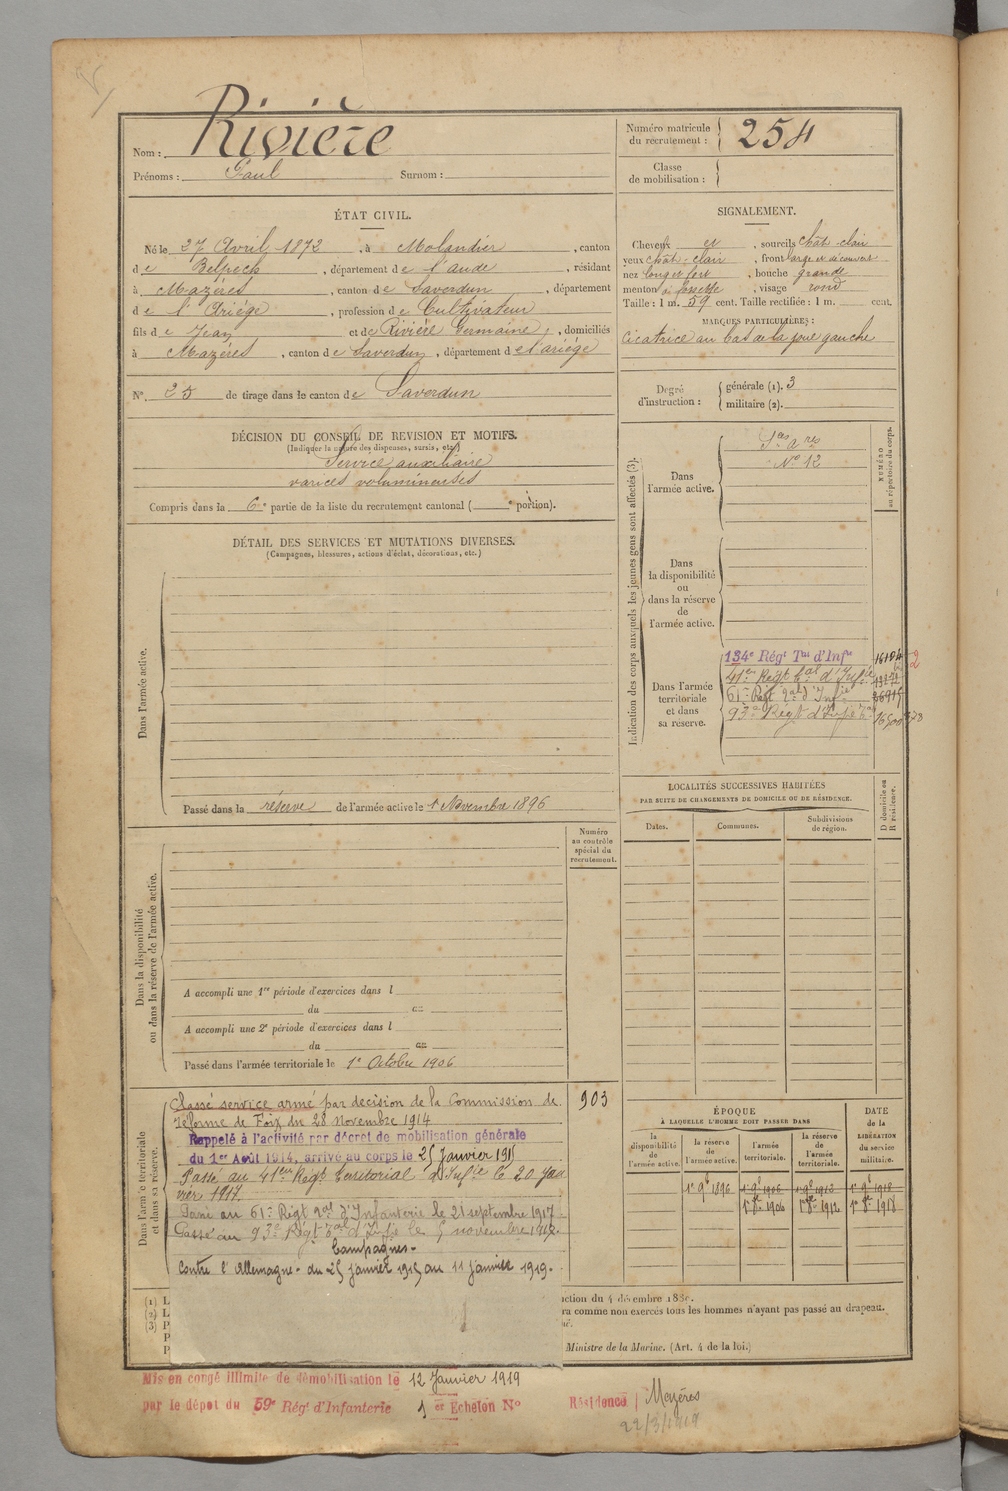 Rivière
Nom :
Prénoms : Paul Surnom :
Numéro matricule du recrutement : 254
Classe de mobilisation :
ÉTAT CIVIL.
Né le 27 Avril 1872, à Molandier, canton
de Belpech, département de l'aude, résidant
à Mazéres, canton de Saverdun, département
de l'Ariége, profession de Cultivateur
fils de Jean et de Rivière Germaine, domiciliés
à Mazéres, canton de Saverdun, département de l'ariége
N° 25 de tirage dans le canton de Saverdun
DÉCISION DU CONSEIL DE REVISION ET MOTIFS.
(Indiquer la nature des dispenses, sursis, etc.)
Service auxiliaire
varices volumineuses
Compris dans la 6e partie de la liste du recrutement cantonal ( e portion).
DÉTAIL DES SERVICES ET MUTATIONS DIVERSES.
(Campagnes, blessures, actions d'éclat, décorations, etc.)
Dans l'armée active.
Passé dans la réserve de l'armée active le 1 Novembre 1896
Numéro au contrôle spécial du recrutement.
Dans la disponibilité ou dans la réserve de l'armée active.
A accompli une 1re période d'exercices dans l
du au
A accompli une 2e période d'exercices dans l
du au
Passé dans l'armée territoriale le 1er Octobre 1906
Dans l'armée territoriale et dans sa réserve.
903
Classé service armé par décision de la Commission de
réforme de Foix du 28 novembre 1914
Rappelé à l'activité par décret de mobilisation générale
du 1er Août 1914, arrivé au corps le 25 Janvier 1915
Passé au 41eme Régt territorial d'Infie le 20 Jan
vier 1917.
Passé au 61e Régt d'Infanterie le 21 septembre 1917.
Passé au 93e Régt d'Infie le 5 novembre
Campagnes.
Contre l'Allemagne. du 25 janvier 1915 au 11 janvier 1919.
SIGNALEMENT.
Cheveux et, sourcils chât-clair
yeux chât-clair, front large et découvert
nez long et fort, bouche grande
menton à fossette, visage rond
Taille : 1 m. 59 cent. Taille rectifiée : 1 m. cent.
MARQUES PARTICULIÈRES :
Cicatrice au bas de la joue gauche
Degré d'instruction : générale (1). 3
militaire (2).
Indication des corps auxquels les jeunes gens sont affectés (3).
NUMÉRO au répertoire du corps.
Dans l'armée active.
N° 12
Dans la disponibilité ou dans la réserve de l'armée active.
Dans l'armée territoriale et dans sa réserve.
134e Régt Tal d'Infie
41e Régt tal d'Infie
61e Régt d'Infie
93e Régt d'Infie
LOCALITÉS SUCCESSIVES HABITÉES
PAR SUITE DE CHANGEMENTS DE DOMICILE OU DE RÉSIDENCE.
Dates. Communes. Subdivisions de région. D domicile ou R résidence.
ÉPOQUE
À LAQUELLE L'HOMME DOIT PASSER DANS
DATE de la LIBÉRATION du service militaire.
la disponibilité de l'armée active. la réserve de l'armée active. l'armée territoriale. la réserve de l'armée territoriale.
1er 9bre 1896 1er 9bre 1906 1er 9bre 1912 1er 9bre 1918
1er 8bre 1906 1er 8bre 1912 1er 8bre 1918
(1) L
(2) L
(3) P
P
P
ction du 4 décembre 1889.
ra comme non exercés tous les hommes n'ayant pas passé au drapeau.
Ministre de la Marine. (Art. 4 de la loi.)
Mis en congé illimité de démobilisation le 12 Janvier 1919
par le dépot du 59e Régt d'Infanterie 1er Echelon N°
Résidence Mazéres
22/3/1919